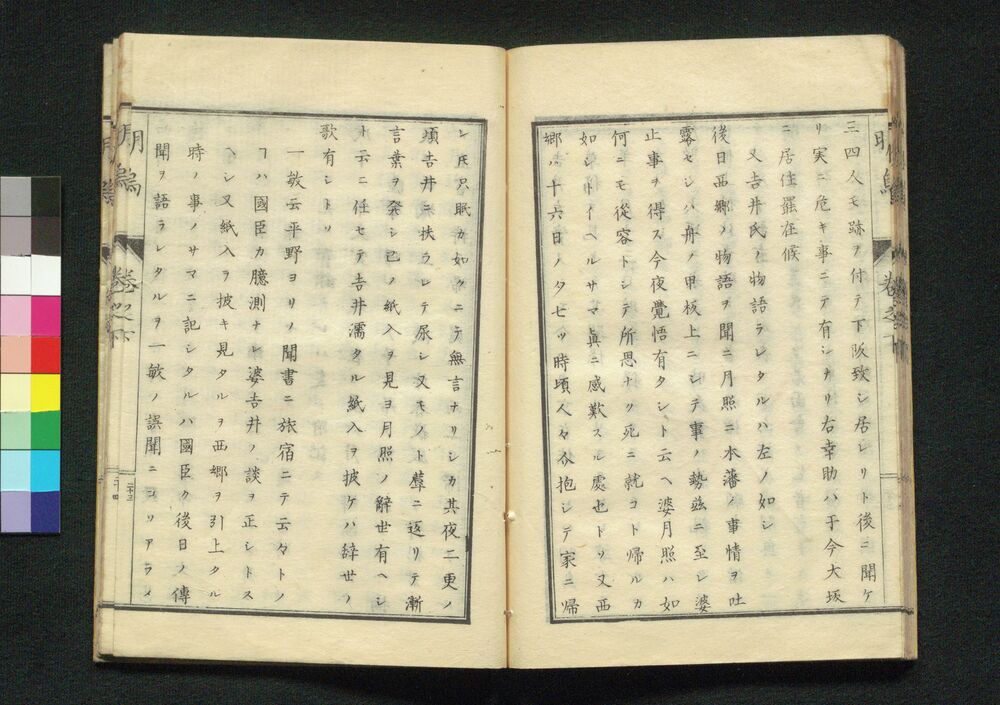 三四人モ跡ヲ付テ下阪致シ居レリト後ニ聞ケ
リ実ニ危キ事ニテ有シナリ右幸助ハ于今大坂
ニ居住羅在候
又吉井氏ノ物語ラレタルハ左ノ如シ
後日西郷ノ物語ヲ聞ニ月照ニ本藩ノ事情ヲ吐
露セシハ舟ノ甲板上ニシテ事ノ勢茲ニ至レ婆
止事ヲ得ス今夜覺悟有タシト云ヘ婆月照ハ如
何ニモ從容トシテ所思ナク死ニ就コト帰ルカ
如シトイヘルサマ眞ニ感歎スル處也トソ又西
郷ハ十六日ノ夕七ッ時頃人々介抱シテ家ニ帰
シ氏只眠カ如クニテ無言ナリシカ其夜二更ノ
頃吉井ニ扶ラレテ尿シ又モノト蓐ニ返リテ漸
言葉ヲ発シ己ノ紙入ヲ見ヨ月照ノ辭世有ヘシ
ト云ニ任セテ吉井濡タル紙入ヲ披ケハ辞世ノ
歌有シトソ
一敏云平野ヨリノ聞書ニ旅宿ニテ云々トノ
ヿハ國臣カ臆測ナレ婆吉井ノ談ヲ正シトス
ヘシ又紙入ヲ披キ見タルヲ西郷ヲ引上タル
時ノ事ノサマニ記シタルハ國臣ク後日ノ傳
聞ヲ語ラレタルヲ一敏ノ誤聞ニコソアラメ
明烏
卷之下